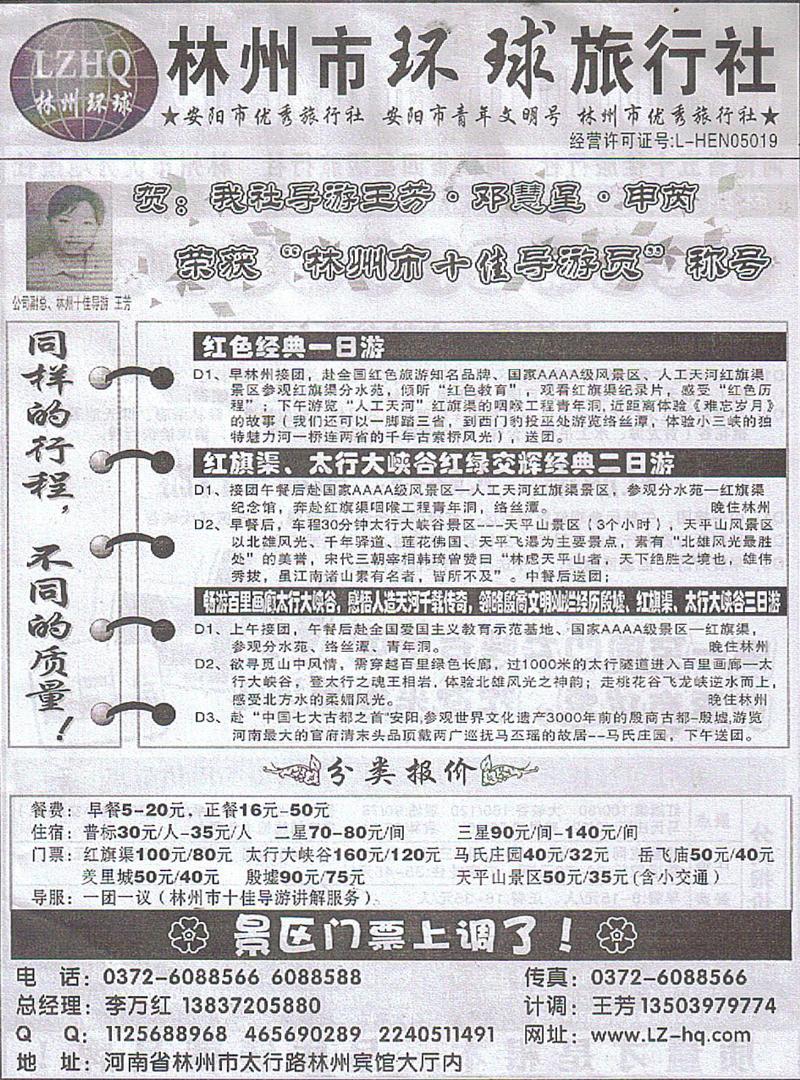 LZHQ
林州环球
林州市环球旅行社
★安阳市优秀旅行社 安阳市青年文明号 林州市优秀旅行社★
经营许可证号:L-HEN05019
贺：我社导游王芳·邓慧星·申芮
荣获“林州市十佳导游员”称号
公司副总、林州十佳导游 王芳
同样的行程，不同的质量！
红色经典一日游
D1、早林州接团，赴全国红色旅游知名品牌、国家AAAA级风景区、人工天河红旗渠
景区参观红旗渠分水苑，倾听“红色教育”，观看红旗渠纪录片，感受“红色历
程”；下午游览“人工天河”红旗渠的咽喉工程青年洞,近距离体验《难忘岁月》
的故事（我们还可以一脚踏三省，到西门豹投巫处游览络丝潭，体验小三峡的独
特魅力河一桥连两省的千年古索桥风光），送团。
红旗渠、太行大峡谷红绿交辉经典二日游
D1、接团午餐后赴国家AAAA级风景区—人工天河红旗渠景区，参观分水苑—红旗渠
纪念馆，奔赴红旗渠咽喉工程青年洞，络丝潭。 晚住林州
D2、早餐后，车程30分钟太行大峡谷景区---天平山景区（3个小时），天平山风景区
以北雄风光、千年驿道、莲花佛国、天平飞瀑为主要景点，素有“北雄风光最胜
处”的美誉，宋代三朝宰相韩琦曾赞曰“林虑天平山者，天下绝胜之境也，雄伟
秀拔，虽江南诸山素有名者，皆所不及”。中餐后送团；
畅游百里画廊太行大峡谷，感悟人造天河千载传奇，领略殷商文明灿烂经历殷墟、红旗渠、太行大峡谷三日游
D1、上午接团，午餐后赴全国爱国主义教育示范基地、国家AAAA级景区—红旗渠，
参观分水苑、络丝潭、青年洞。 晚住林州
D2、欲寻觅山中风情，需穿越百里绿色长廊，过1000米的太行隧道进入百里画廊—太
行大峡谷，登太行之魂王相岩，体验北雄风光之神韵；走桃花谷飞龙峡逆水而上，
感受北方水的柔媚风光。 晚住林州
D3、赴“中国七大古都之首”安阳,参观世界文化遗产3000年前的殷商古都-殷墟,游览
河南最大的官府清末头品顶戴两广巡抚马丕瑶的故居--马氏庄园，下午送团。
分类报价
餐费：早餐5-20元，正餐16元-50元
住宿：普标30元/人-35元/人 二星70-80元/间 三星90元/间-140元/间
门票：红旗渠100元/80元 太行大峡谷160元/120元 马氏庄园40元/32元 岳飞庙50元/40元
羑里城50元/40元 殷墟90元/75元 天平山景区50元/35元(含小交通)
导服：一团一议（林州市十佳导游讲解服务）。
景区门票上调了！
电 话：0372-6088566 6088588 传真：0372-6088566
总经理：李万红 13837205880 计调：王芳13503979774
Q Q：1125688968 465690289 2240511491 网址：www.LZ-hq.com
地 址：河南省林州市太行路林州宾馆大厅内